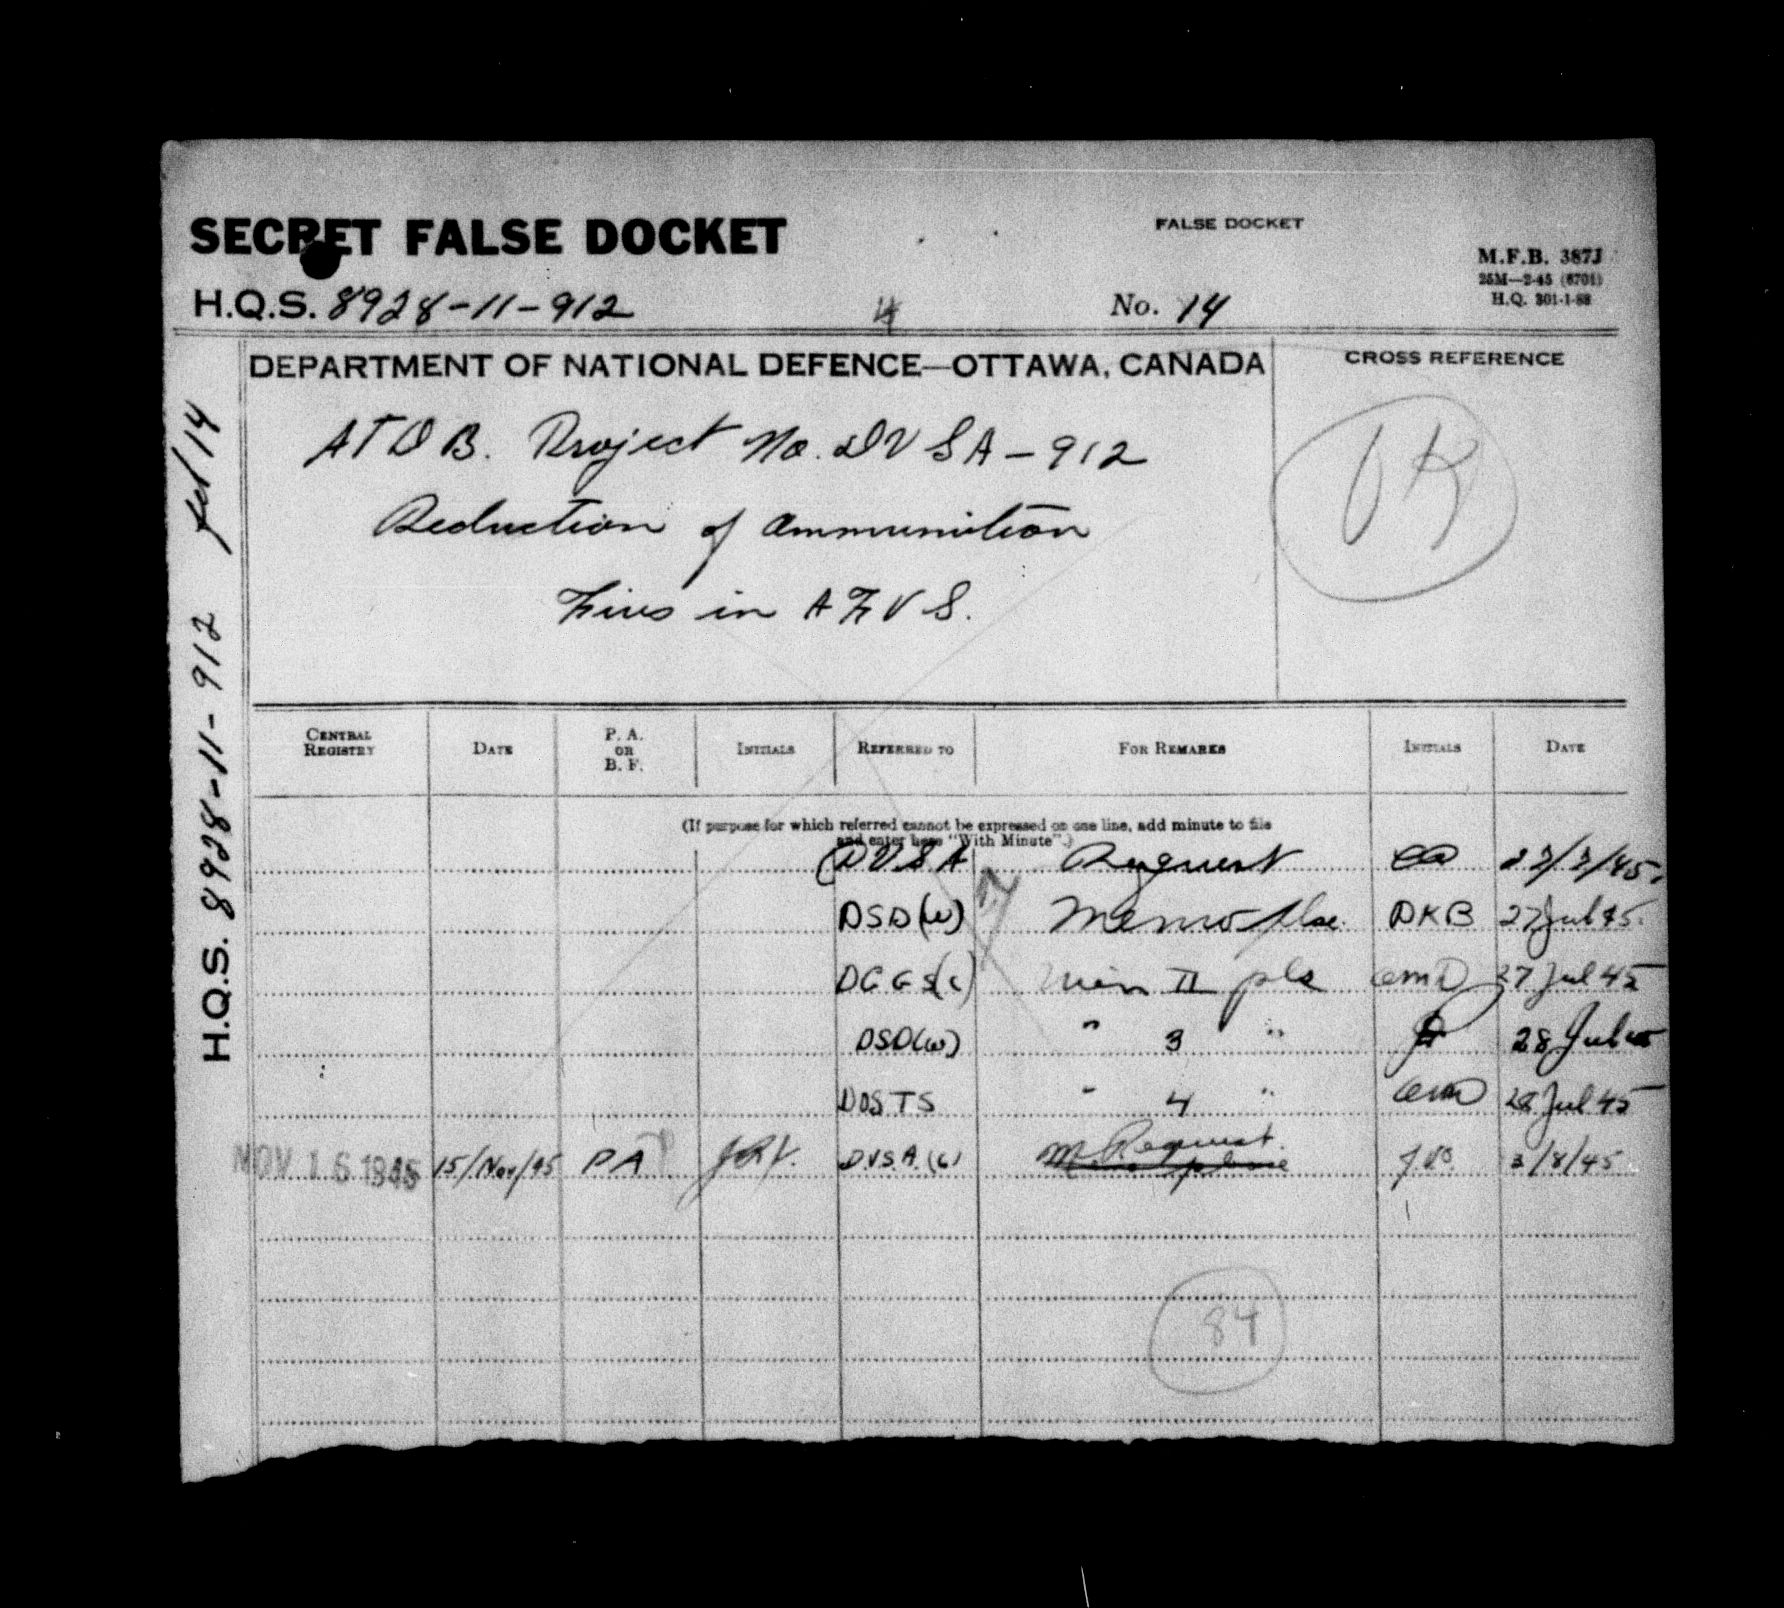 SECRET FALSE DOCKET
FALSE DOCKET
M.F.B. 387J
25M—2-45 (6701)
H.Q. 301-1-88
H.Q.S. 8928-11-912
4
No. 14
DEPARTMENT OF NATIONAL DEFENCE—OTTAWA, CANADA
CROSS REFERENCE
ATDB. Project No. DVSA-912
Reduction of Ammunition
Fires in AFVS.
H.Q.S. 8928-11-912 fd 14
CENTRAL REGISTRY DATE P. A. OR B. F. INITIALS REFERRED TO FOR REMARKS INITIALS DATE
(If purpose for which referred cannot be expressed on one line, add minute to file
and enter here "With Minute".)
DVSA Request
DSD(W) Memo plse. DKB 27 Jul 45
DGGS(c) Min II pls 27 Jul 45
DSD(W) " 3 " 28 Jul 45
DOSTS " 4 " 28 Jul 45
NOV 16 1945 15/Nov/45 PA D.V.S.A.(c) Request. 3/8/45
84